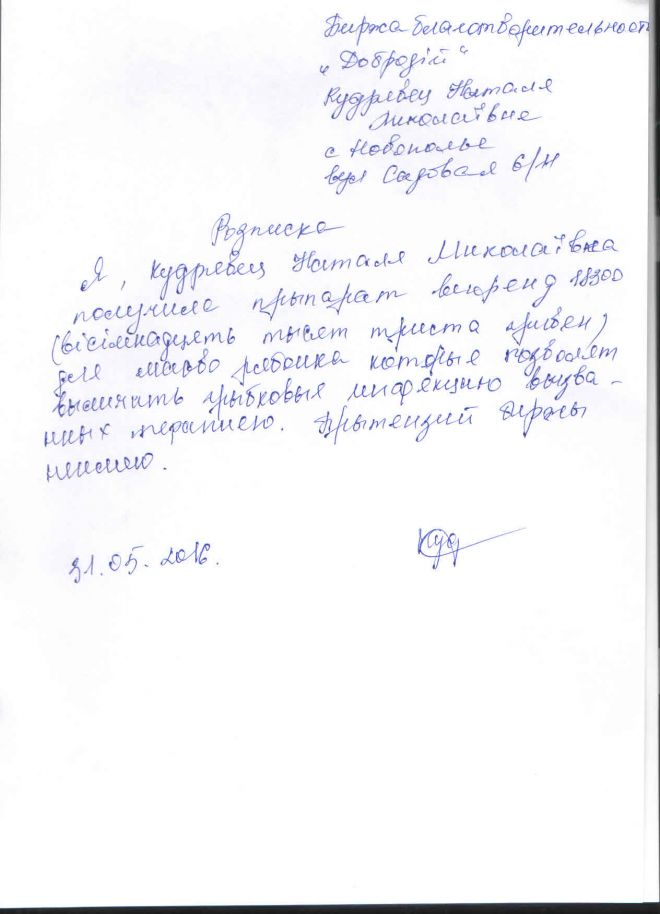 Биржа благотворительност
"Добродій"
Кудрявец Наталя
Миколаївна
с Новополье
вул Садовая б/н
Розписка
Я, Кудрявец Наталя Миколаївна
получила прыпарат 18300
(вісімнадцять тысет триста гривен)
для маево рябонка которые позволят
выличить грыбковыя инфекцию вызва-
нных терапиею. Прытензий биржы
неимею.
31.05.2016.
Куд